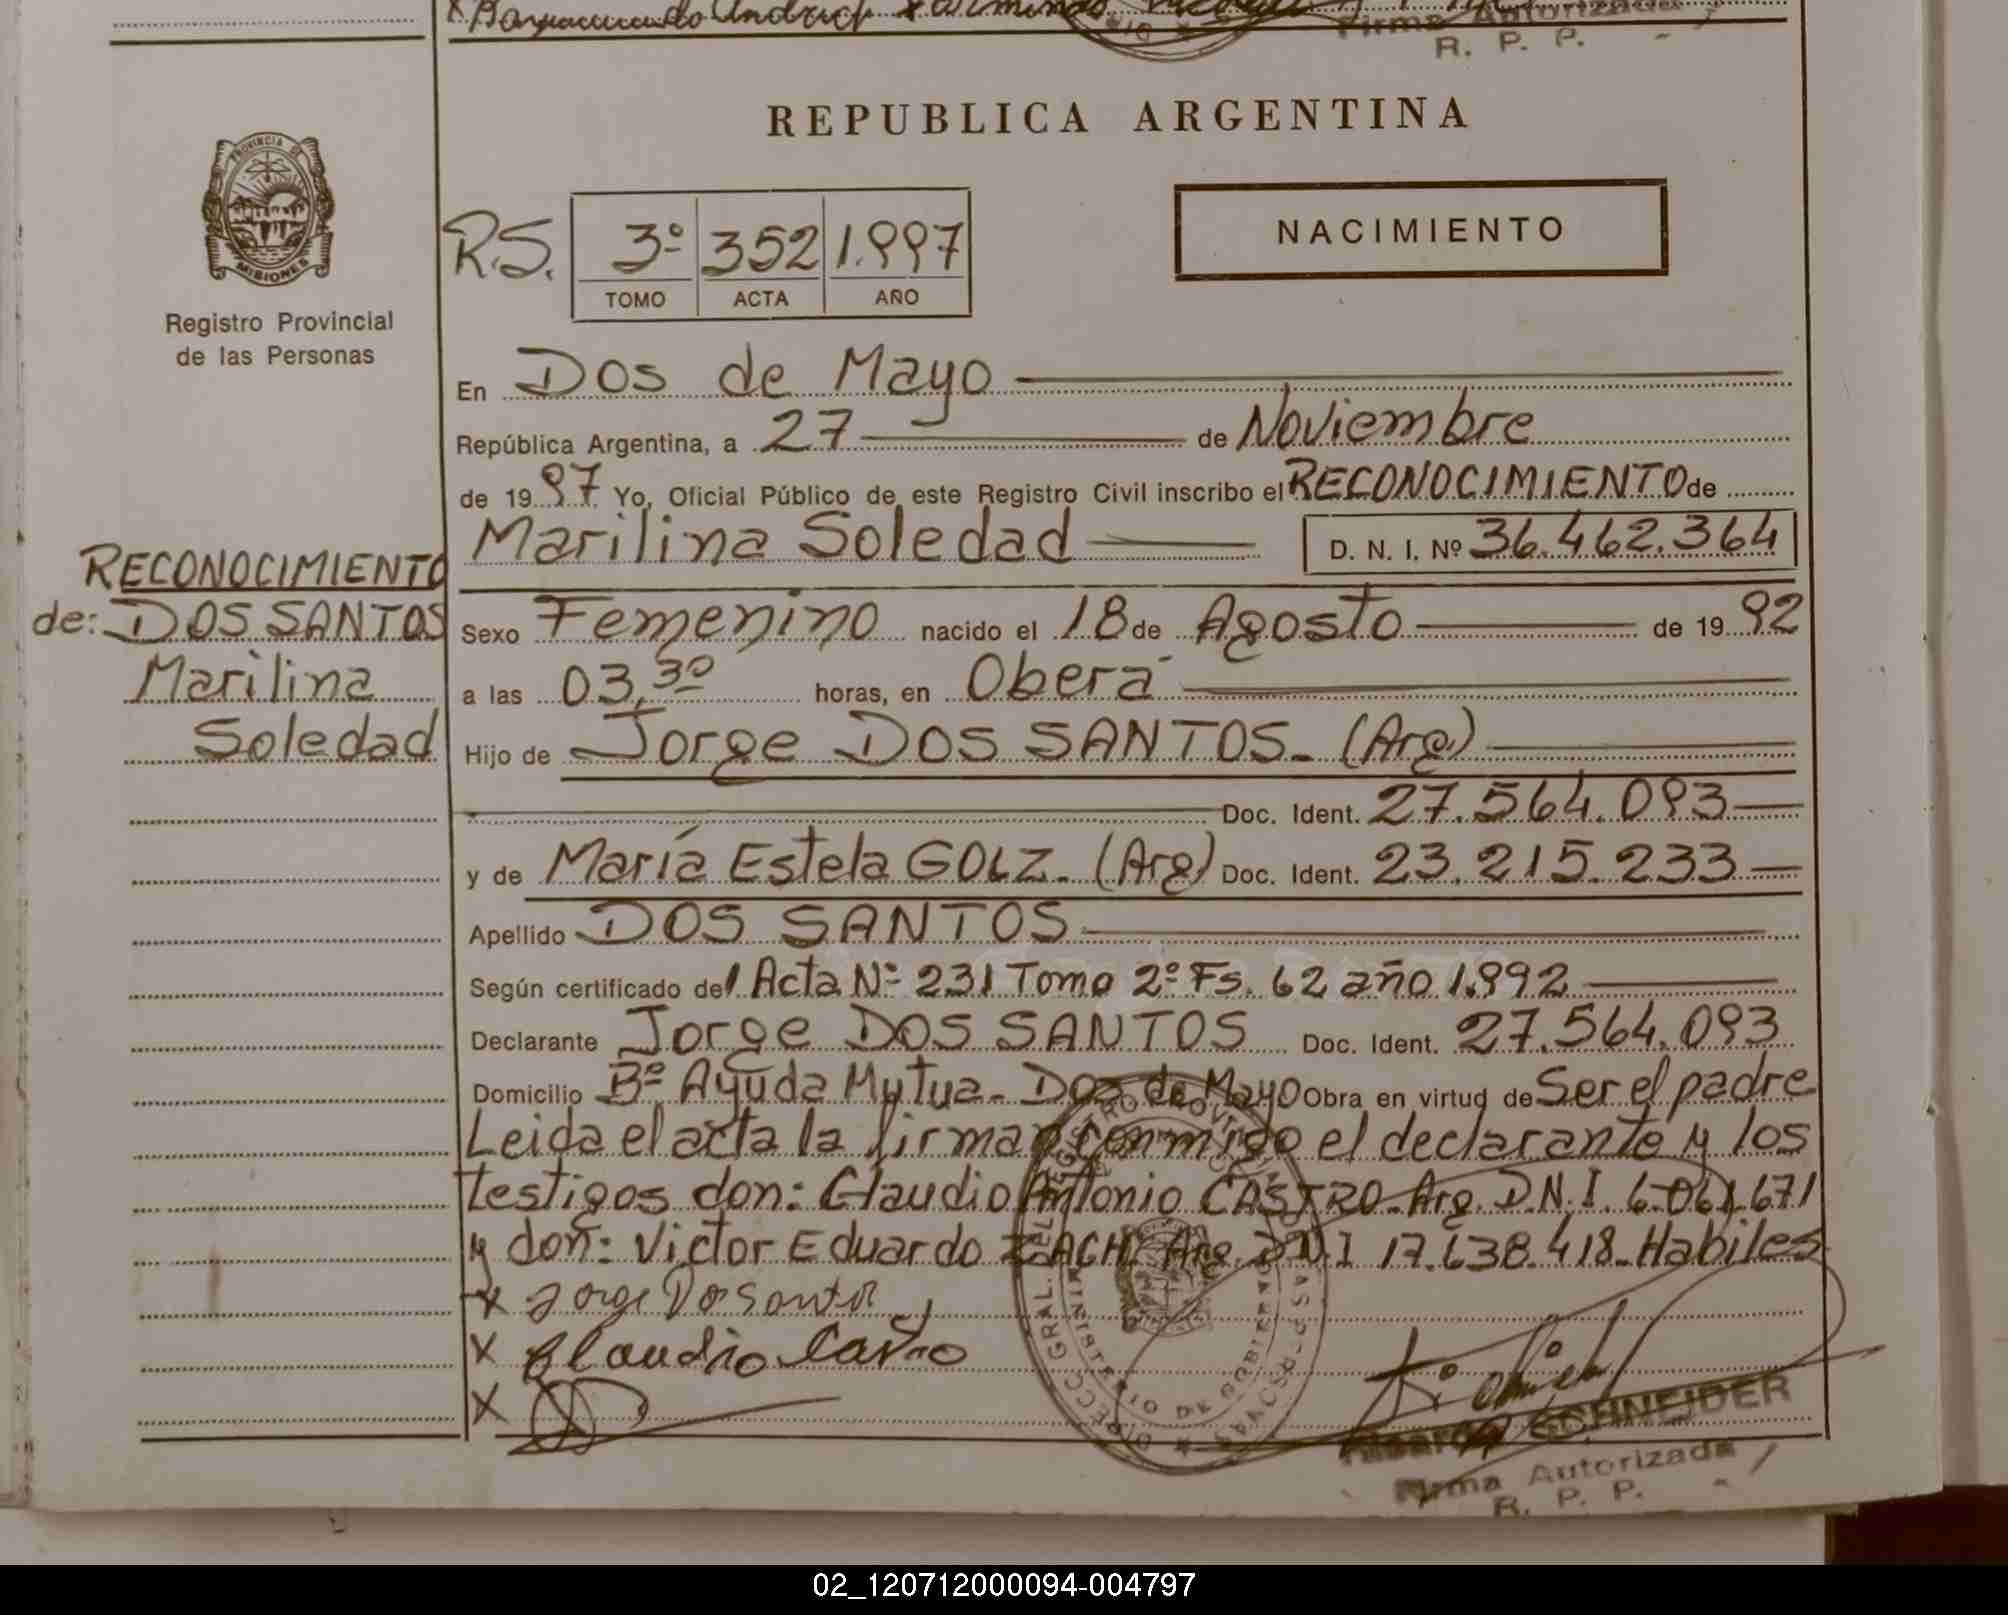 Firma Autorizada
R. P. P.
REPUBLICA ARGENTINA
PROVINCIA DE
MISIONES
Registro Provincial
de las Personas
R.S. 3º 352 1.997
TOMO ACTA AÑO
NACIMIENTO
En Dos de Mayo
República Argentina, a 27 de Noviembre
de 1997 Yo, Oficial Público de este Registro Civil inscribo el RECONOCIMIENTO de
Marilina Soledad D. N. I. Nº 36.462.364
RECONOCIMIENTO
de: DOS SANTOS
Marilina
Soledad
Sexo Femenino nacido el 18 de Agosto de 1992
a las 03,30 horas, en Oberá
Hijo de Jorge DOS SANTOS. (Arg)
Doc. Ident. 27.564.093
y de María Estela GOLZ. (Arg) Doc. Ident. 23.215.233
Apellido DOS SANTOS
Según certificado del Acta Nº 231 Tomo 2º Fs. 62 año 1.992
Declarante Jorge DOS SANTOS Doc. Ident. 27.564.093
Domicilio Bº Ayuda Mutua - Dos de Mayo Obra en virtud de Ser el padre
Leida el acta la firman conmigo el declarante y los
testigos don: Claudio Antonio CASTRO. Arg. D.N.I. 6.061.671
y don: Victor Eduardo Arg. D.N.I 17.638.418. Habiles
x Jorge Dos Santos
x Claudio Castro
x
SCHNEIDER
Firma Autorizada
R. P. P.
02_120712000094-004797